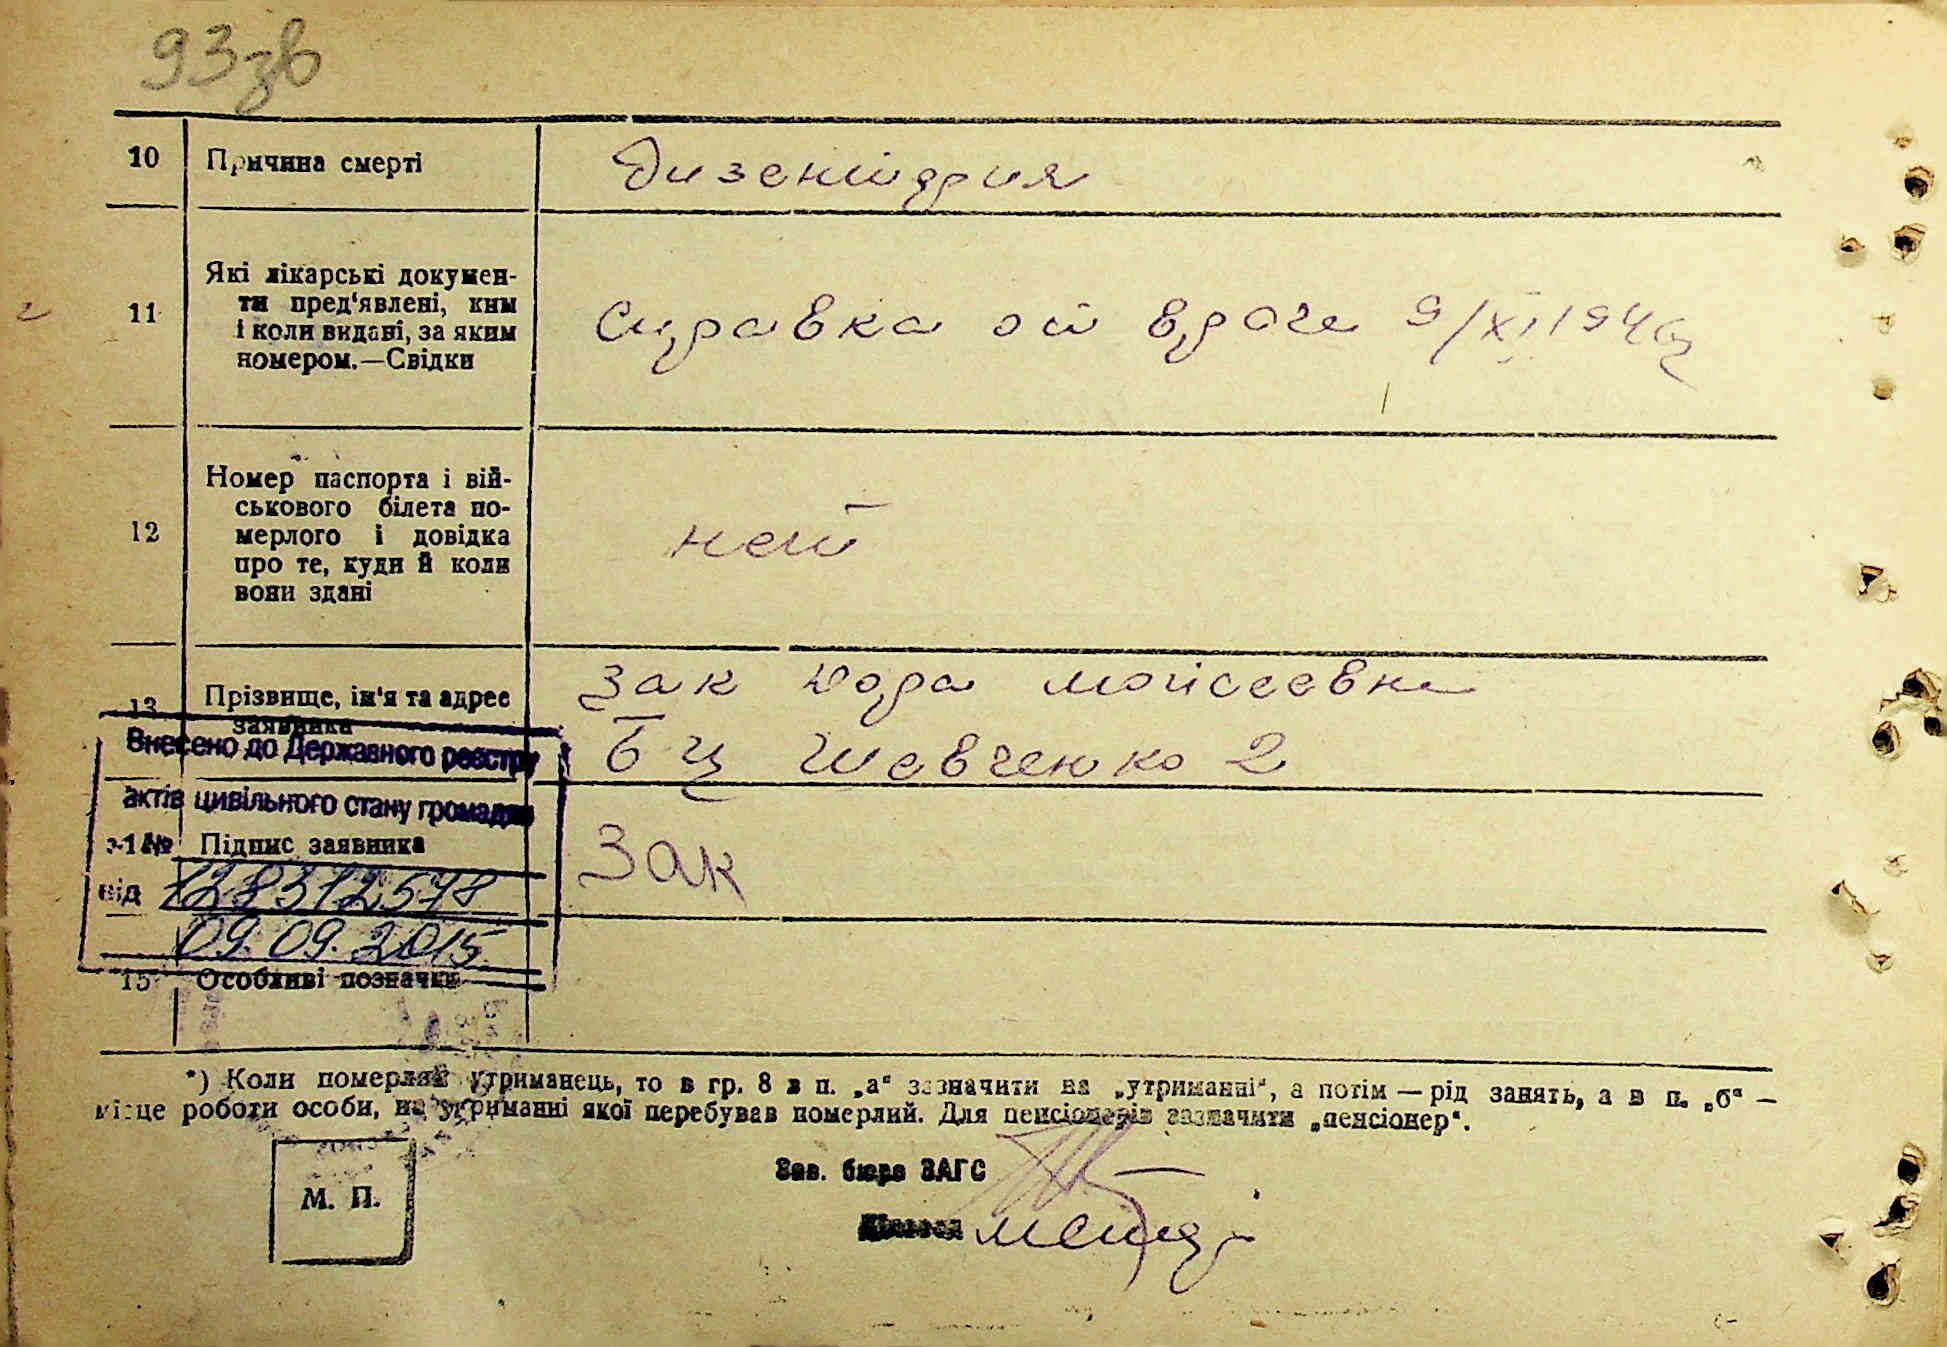 93зв
10 Причина смерті Дизентерия
11 Які лікарські докумен-
ти пред'явлені, ким
і коли видані, за яким
номером.—Свідки
Справка от врача 9/XI 194
12 Номер паспорта і вій-
ськового білета по-
мерлого і довідка
про те, куди й коли
вони здані
нет
13 Прізвище, ім'я та адрес
заявника
Зак Дора Моисеевна
БЦ Шевченко 2
Внесено до Державного реєстру
актів цивільного стану громадян
за №
128312578
від
09.09.2015
14 Підпис заявника Зак
15 Особливі позначки
*) Коли померлий утриманець, то в гр. 8 в п. „а“ зазначити на „утриманні“, а потім — рід занять, а в п. „б“ —
місце роботи особи, на утриманні якої перебував померлий. Для пенсіонерів зазначити „пенсіонер“.
М. П.
Зав. бюро ЗАГС
Діловод